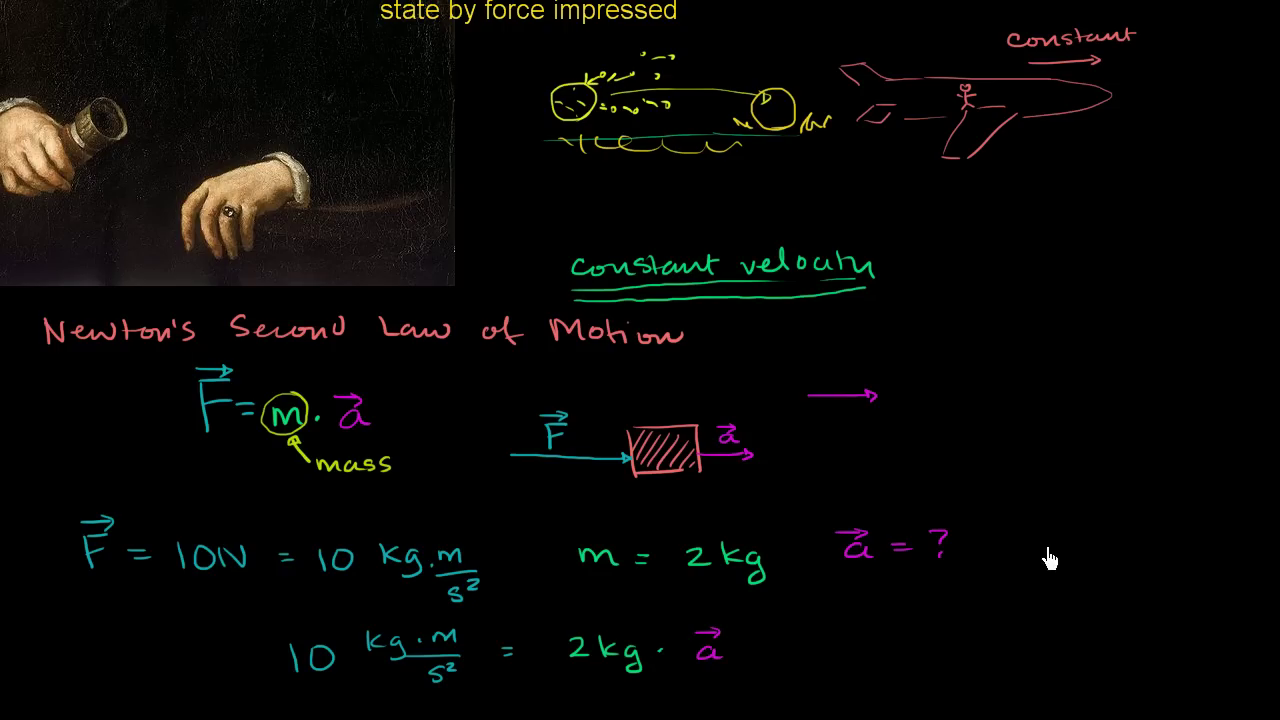 state by force impressed
constant
constant velocity
Newton's Second Law of Motion
F = m · a
mass
F
a
F = 10N = 10 kg·m/s²
m = 2kg
a = ?
10 kg·m/s² = 2kg · a